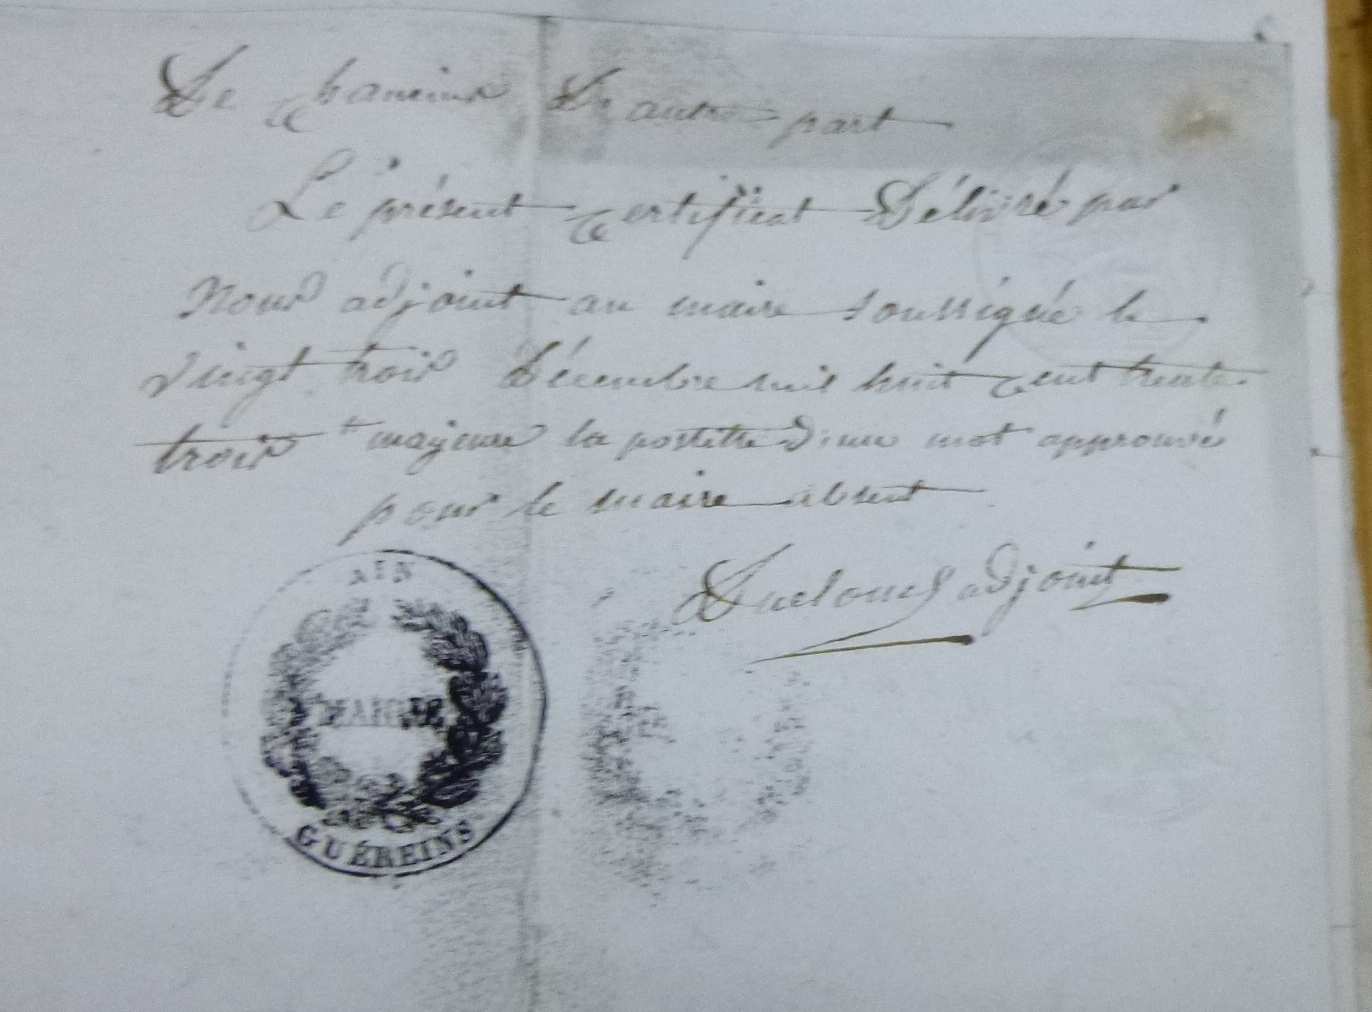 De Chaneins D'autre part
Le présent Certificat Délivré par
Nous adjoint au maire soussigné le
vingt trois Décembre mil huit Cent trente
trois majeure la d'un mot approuvé
pour le maire absent
adjoint
AIN
MAIRIE
GUÉREINS